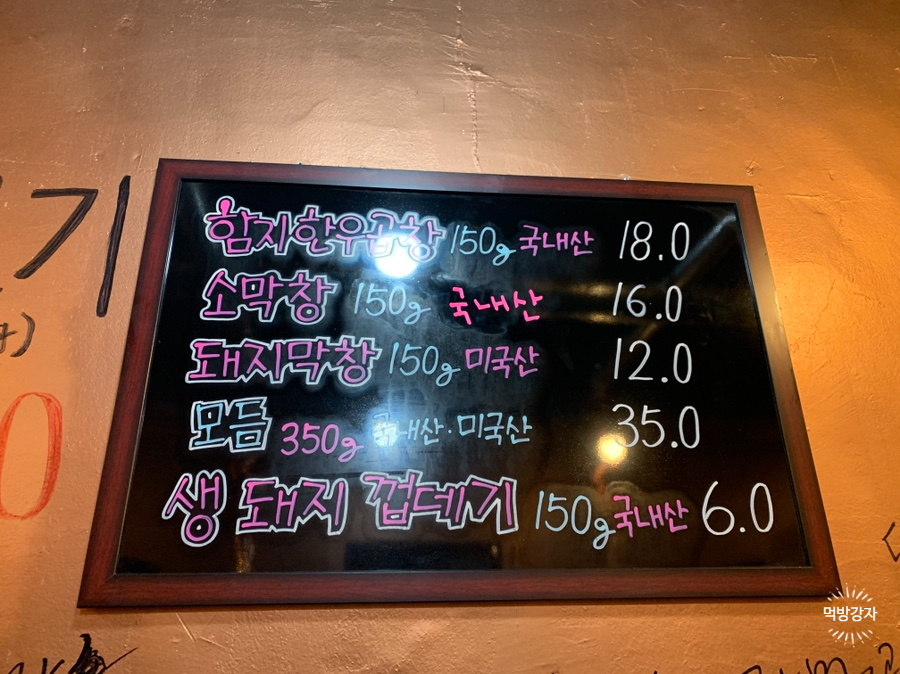 기
함지한우곱창 150g 국내산 18.0
소막창 150g 국내산 16.0
돼지막창 150g 미국산 12.0
모듬 350g 국내산·미국산 35.0
생 돼지 껍데기 150g 국내산 6.0
0
먹방강자